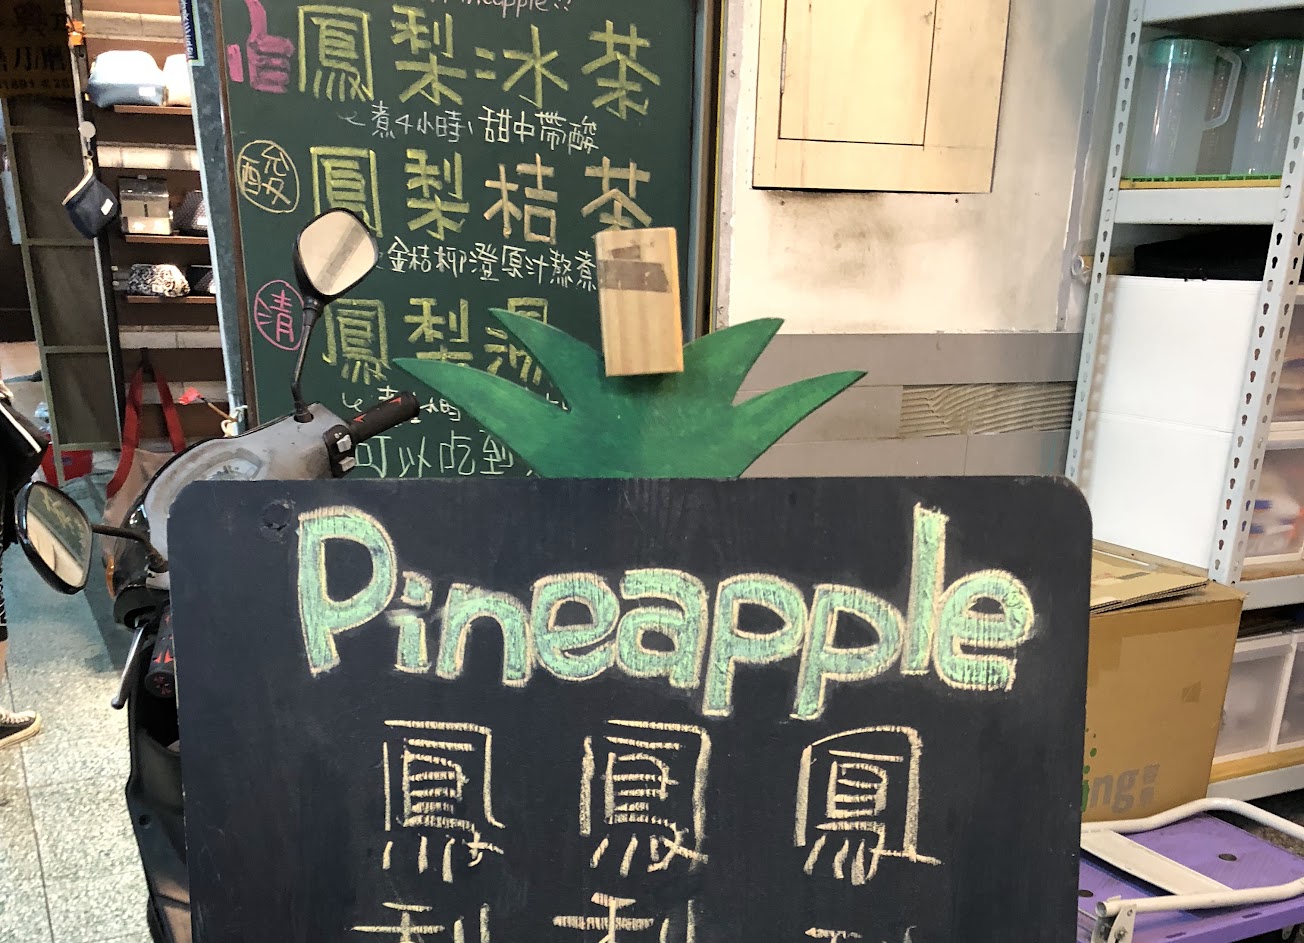 Pineapple!!
鳳梨冰茶
煮4小時、甜中帶酸
酸
鳳梨桔茶
金桔柳澄原汁熬煮
清
鳳梨
可以吃到
Pineapple
鳳 鳳 鳳
梨 梨
ing